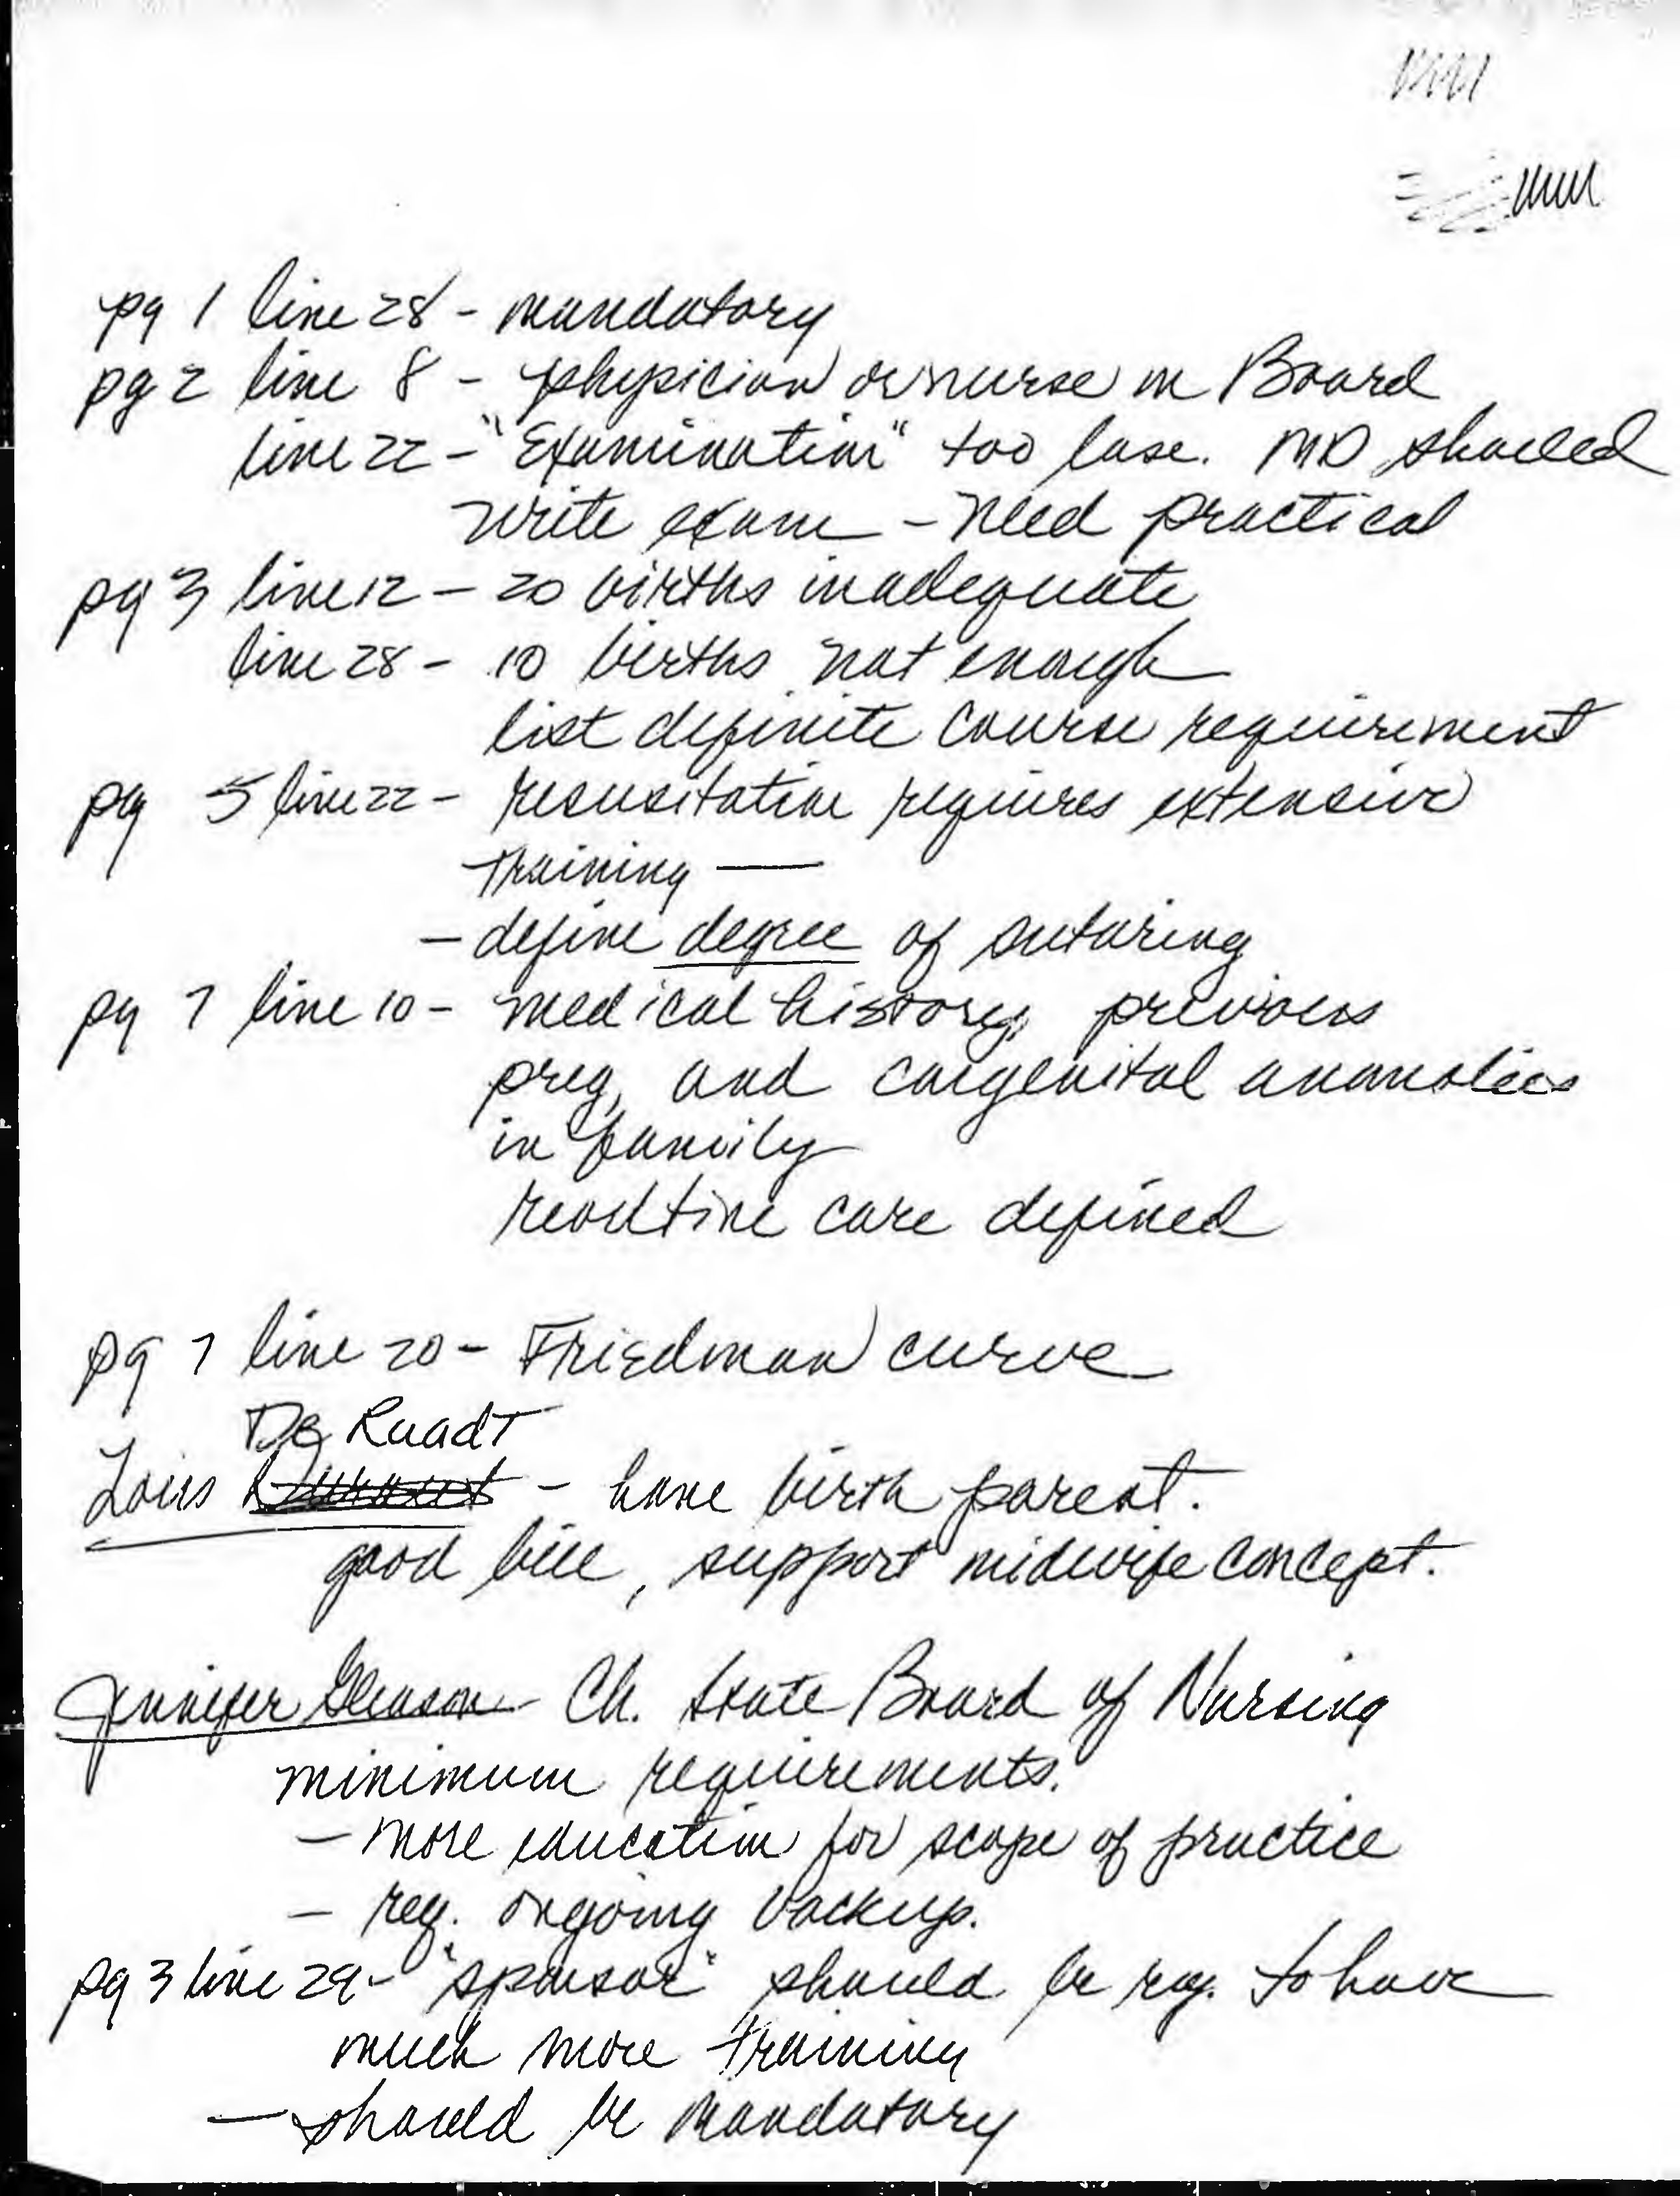 pg 1 line 28 - mandatory
pg 2 line 8 - physician or nurse on Board
line 22 - "Examination" too lose. MD should
write exam - need practical
pg 3 line 12 - 20 births inadequate
line 28 - 10 births not enough
list definite course requirement
pg 5 line 22 - resusitation requires extensive
training —
- define degree of suturing
pg 7 line 10 - medical history, previous
preg, and congenital anamolies
in family
routine care defined
pg 7 line 20 - Friedman curve
De Raadt
Lois - home birth parent.
good bill, support midwife concept.
Jennifer Gleason - Ch. State Board of Nursing
minimum requirements.
- more education for scope of practice
- req. ongoing backup.
pg 3 line 29 - "sponsor" should be req. to have
much more training
- should be mandatory